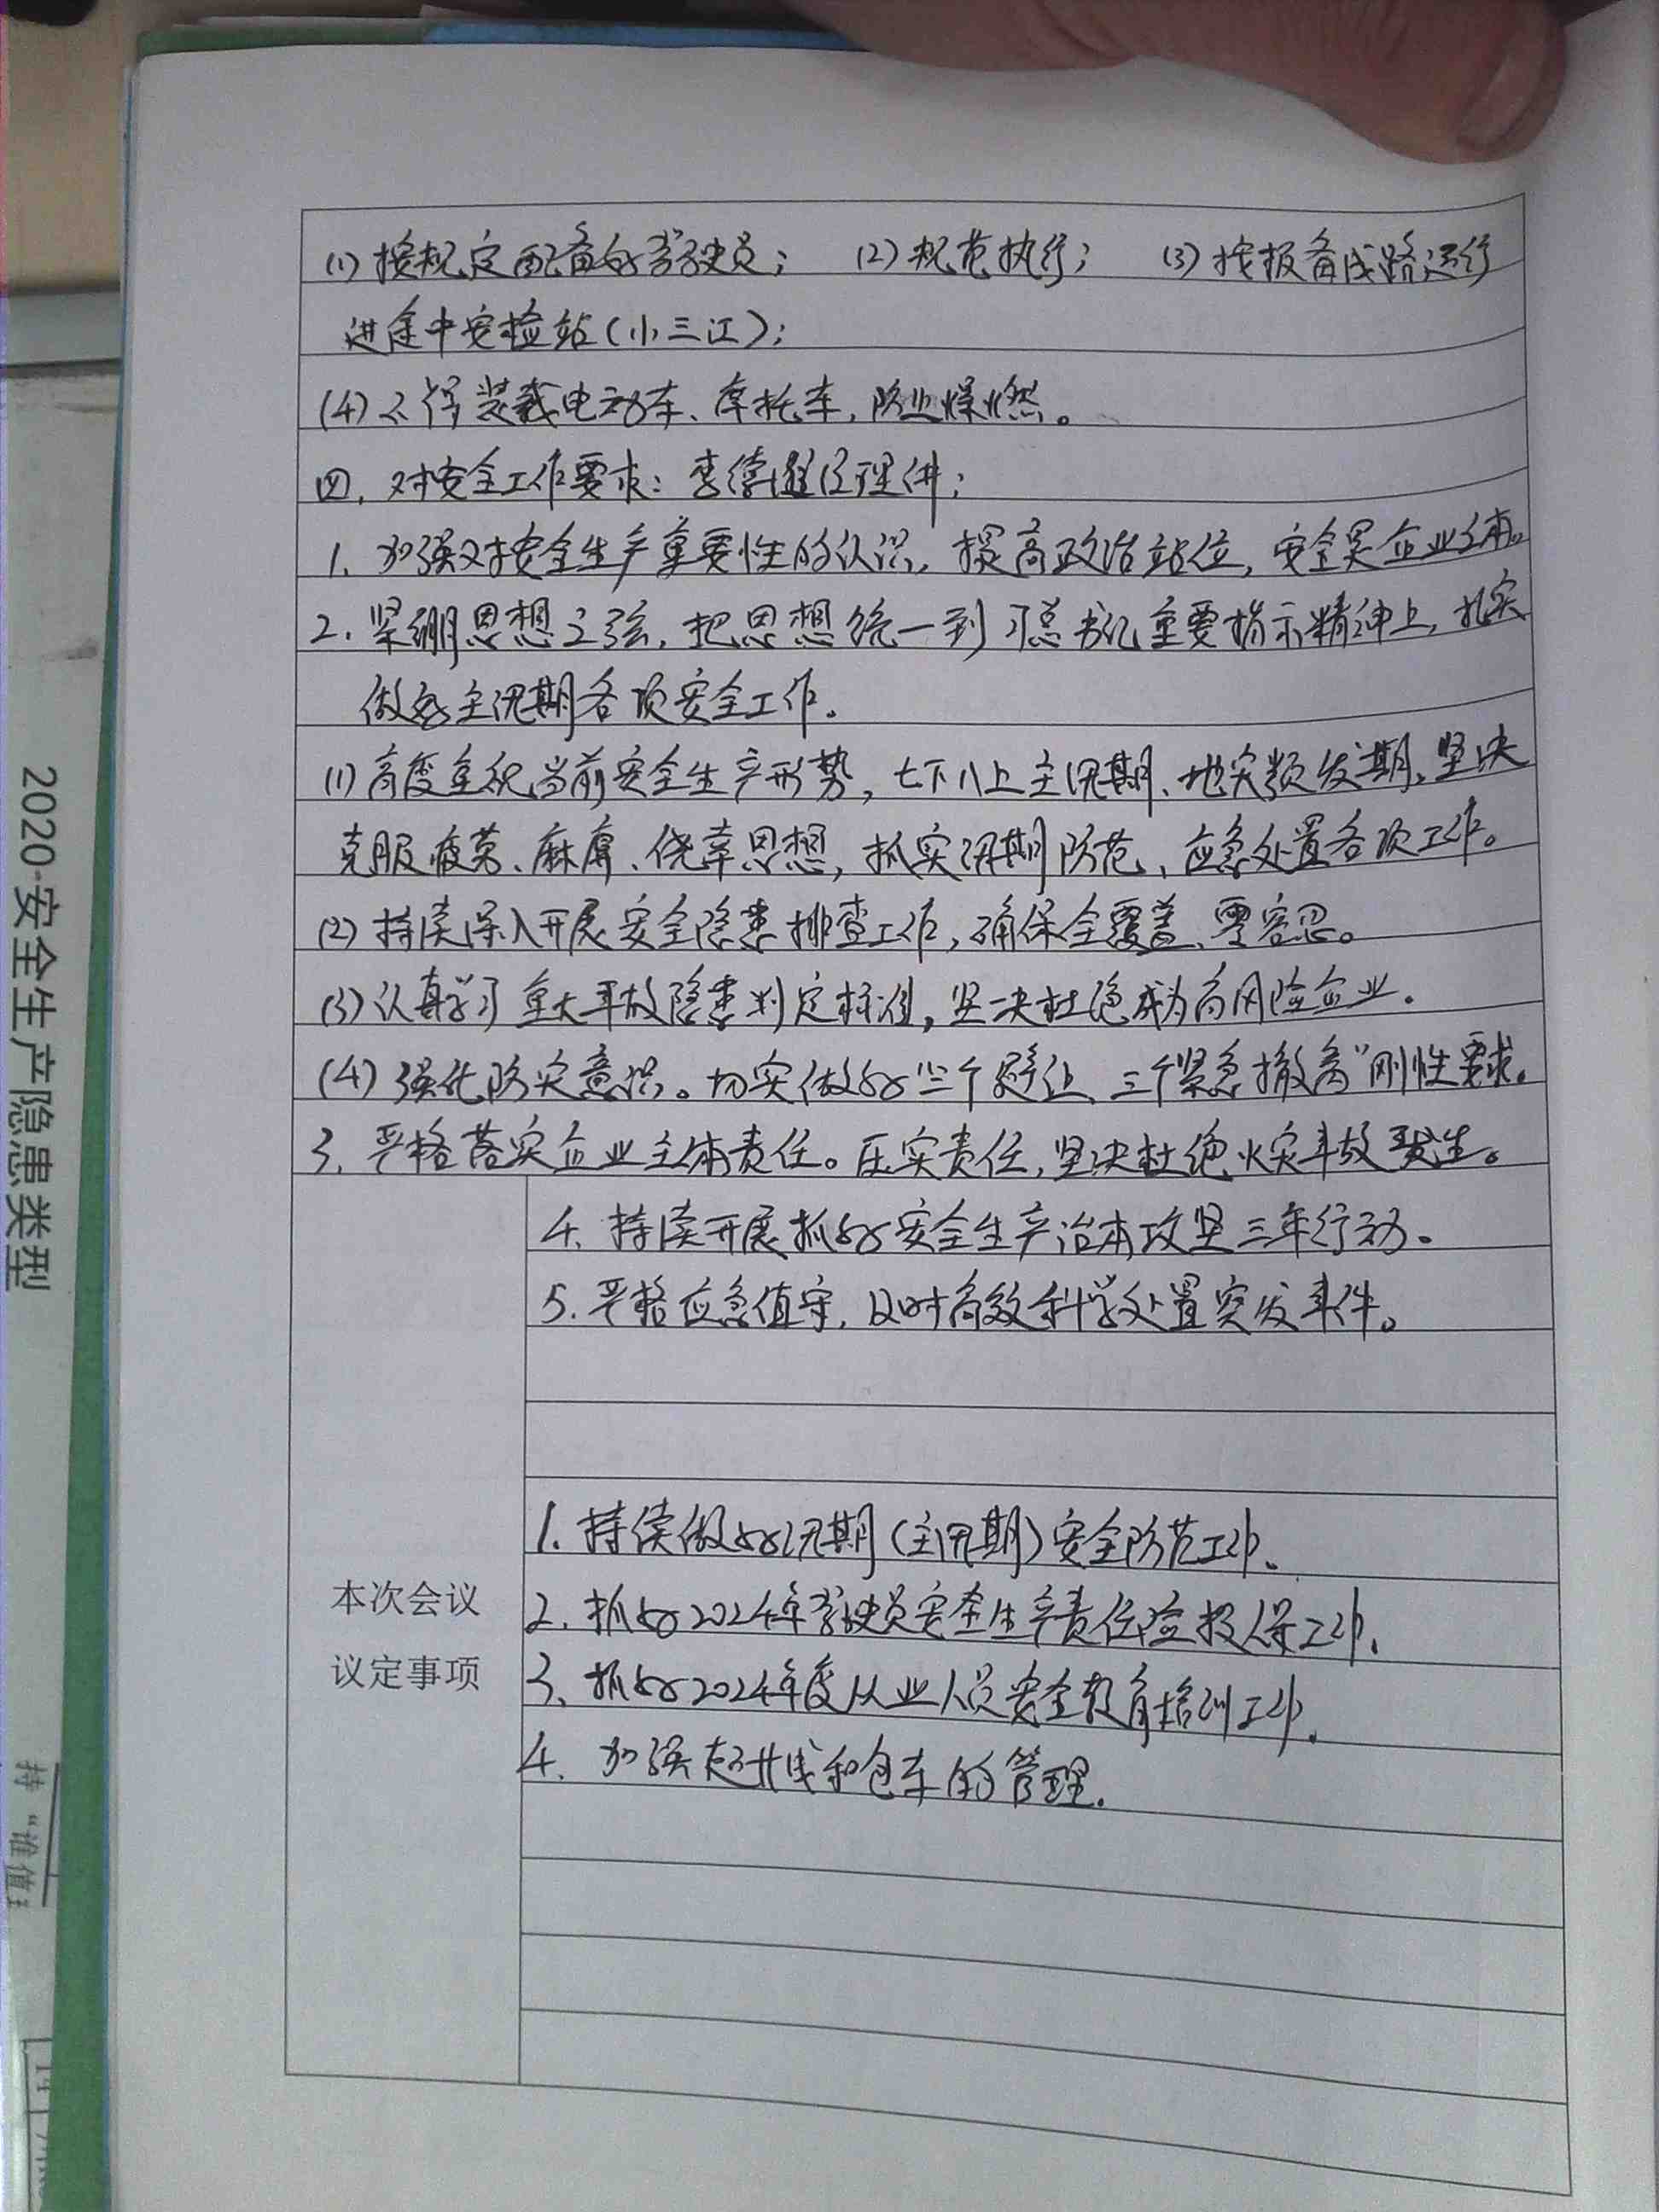 (1) 按规定配备好驾驶员； (2) 规范执行； (3) 按报备线路运行
进途中安检站(小三江)；
(4) 不得装载电动车、摩托车，防止爆燃。
四、对安全工作要求：李德 经理讲：
1. 加强对安全生产重要性的认识，提高政治站位，安全是企业之本。
2. 紧绷思想之弦，把思想统一到习总书记重要指示精神上，扎实
做好主汛期各项安全工作。
(1) 高度重视当前安全生产形势，七下八上主汛期、地灾频发期，坚决
克服疲劳、麻痹、侥幸思想，抓实汛期防范、应急处置各项工作。
(2) 持续深入开展安全隐患排查工作，确保全覆盖、零容忍。
(3) 认真学习重大事故隐患判定标准，坚决杜绝成为高风险企业。
(4) 强化防灾意识。切实做好“三个避让、三个紧急撤离”刚性要求。
3. 严格落实企业主体责任。压实责任，坚决杜绝火灾事故发生。
4. 持续开展抓好安全生产治本攻坚三年行动。
5. 严格应急值守，及时高效科学处置突发事件。
本次会议
议定事项
1. 持续做好汛期(主汛期)安全防范工作。
2. 抓好2024年驾驶员安全生产责任险投保工作。
3. 抓好2024年度从业人员安全教育培训工作。
4. 加强超长线和包车的管理。
2020-安全生产隐患类型
持“谁值